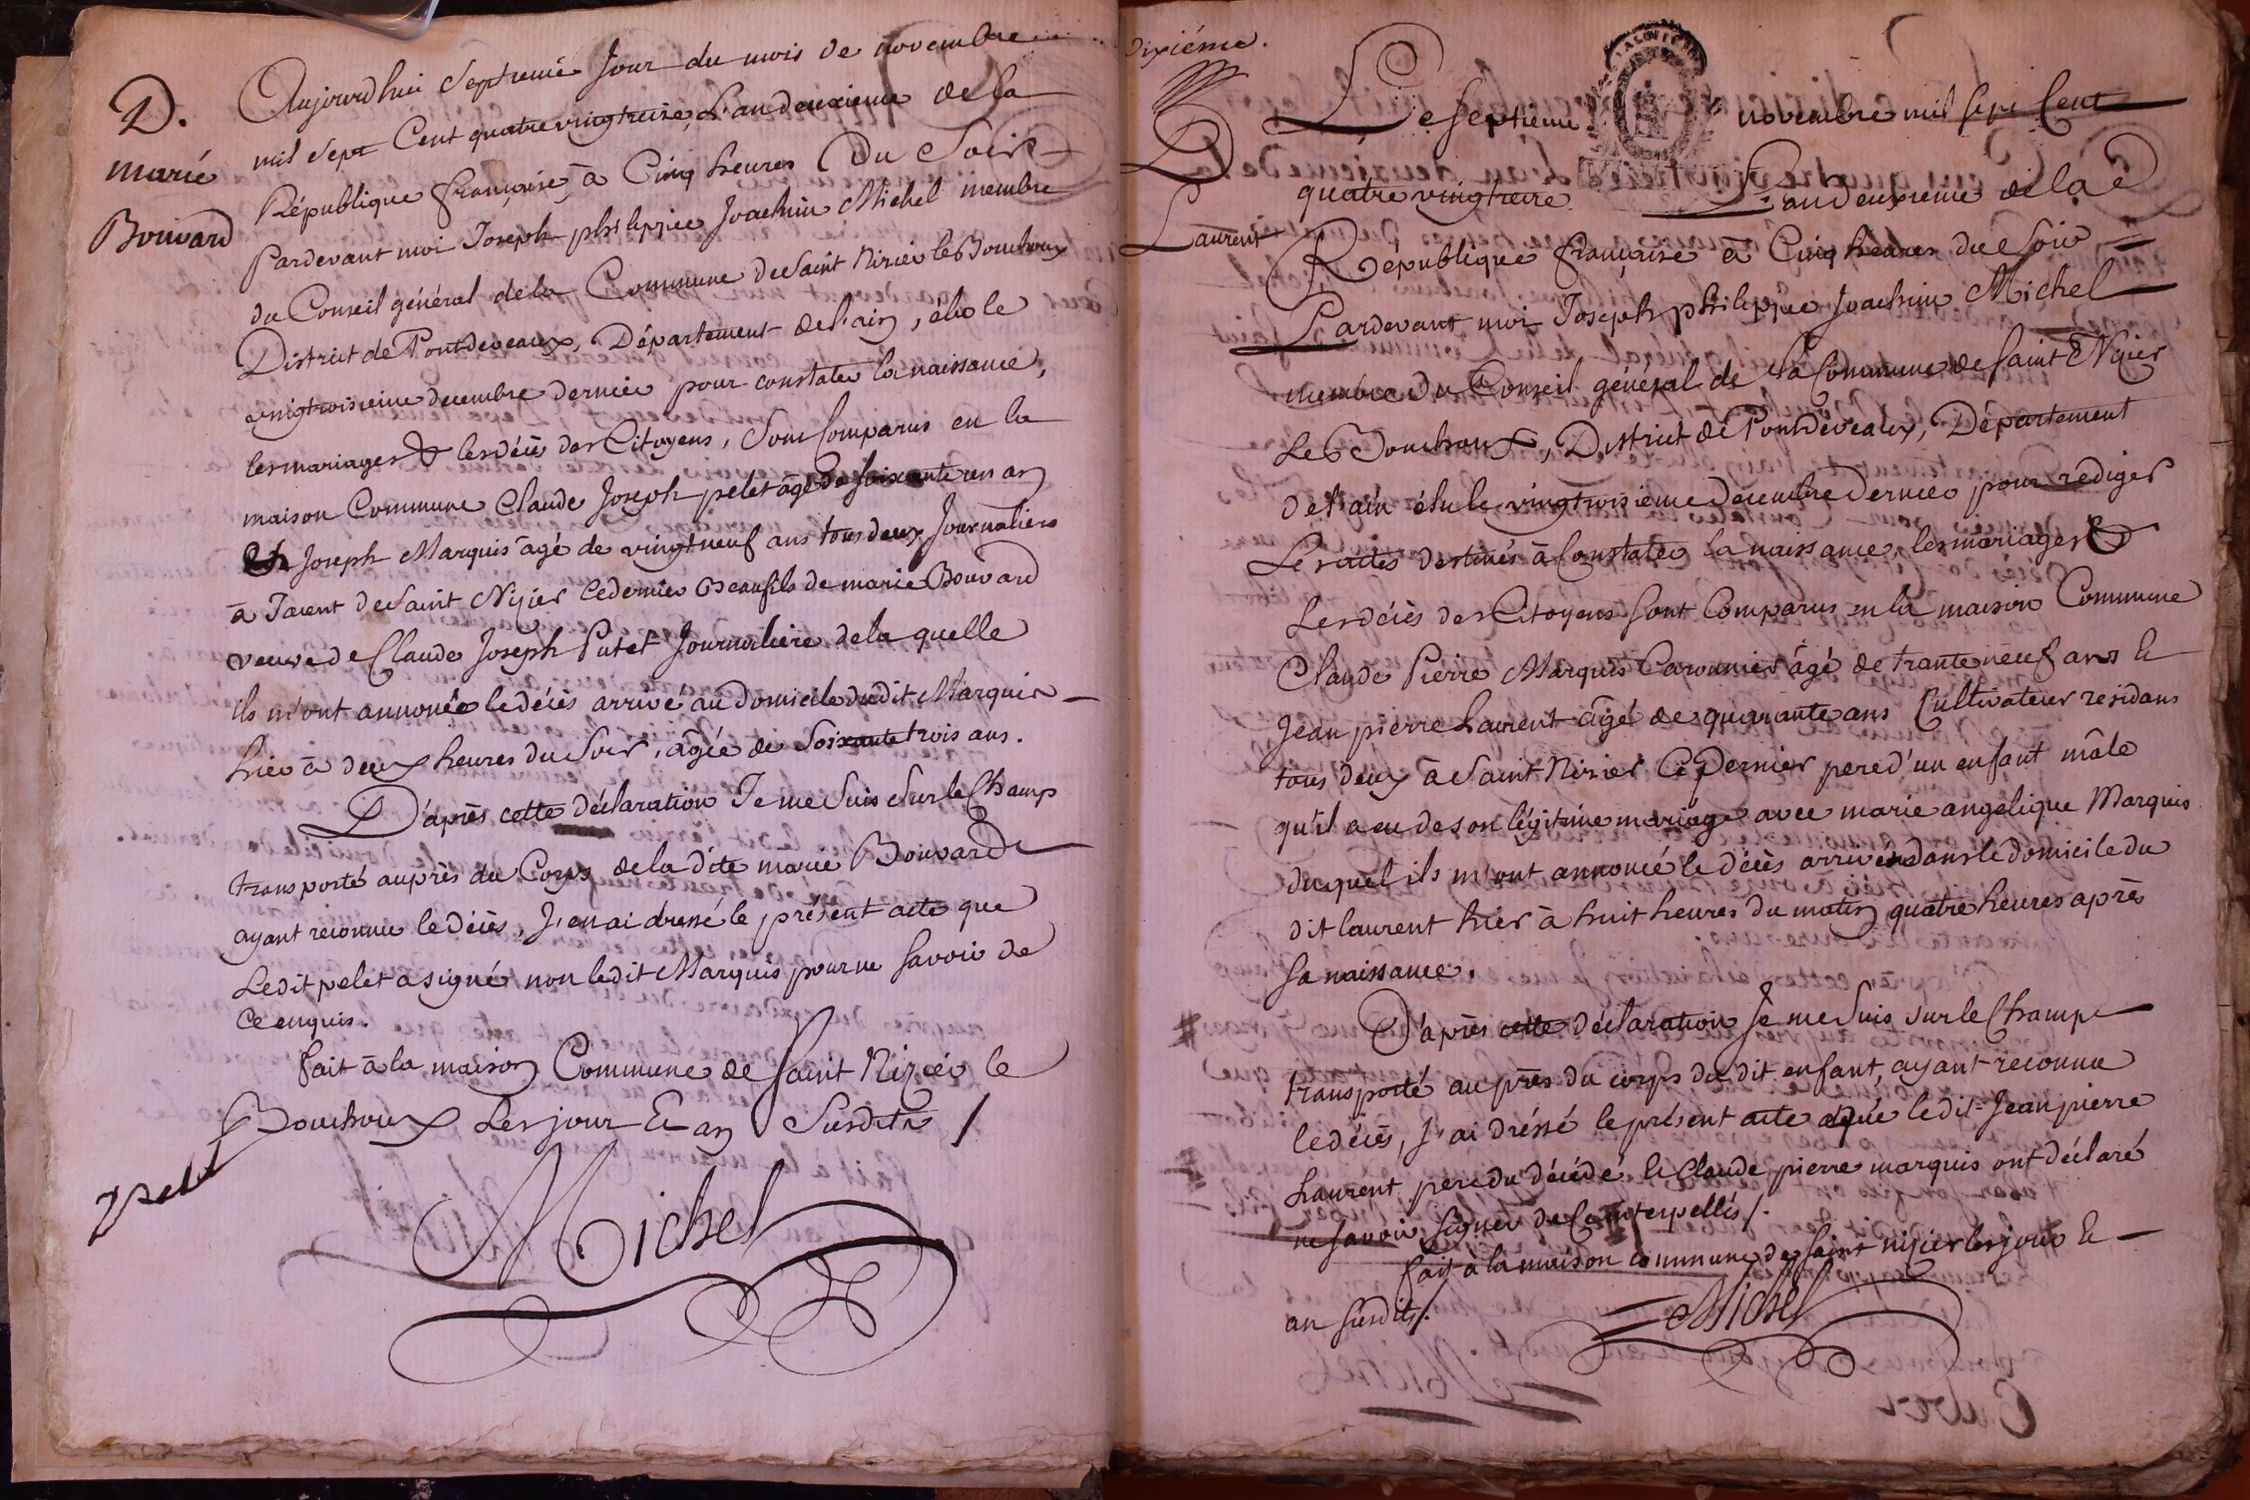 D.
marié
Bouvard
Aujourd'hui Septieme Jour du mois de novembre
mil Sept Cent quatre vingt treize, L'an deuxieme de la
République françoise, à Cinq heures Du Soir
Pardevant moi Joseph philippe Joachim Michel membre
du Conseil général de la Commune de Saint Nizier le Bouchoux
District de Pontdeveaux, Département de l'ain, élu le
vingtroisieme decembre dernier pour constater la naissance,
les mariages & les décès des Citoyens, Sont Comparus en la
maison Commune Claude Joseph pelet âgé de soixante
& Joseph Marquis âgé de vingt neuf ans tous deux Journaliers
à de Saint Nizier ce dernier Beaufils de marie Bouvard
veuve de Claude Joseph Putet Journaliere de la quelle
ils m'ont annoncée le décès arrivé au Domicile dudit Marquis
hier à deux heures du Soir, âgée de Soixante trois ans.
D'après cette déclaration Je me Suis Sur le Champ
transporté auprès du Corps de la dite marie Bouvard
ayant reconnu le décès, J'en ai dressé le présent acte que
Ledit pelet a signé non ledit Marquis pour ne Savoir de
Ce enquis.
fait à la maison Commune de Saint Nizier le
Bouchoux Les jour & an Susdits /
Pelet
Michel
Dixiéme.
D
Laurent
Le Septieme novembre mil Sept Cent
quatre vingt treize L'an deuxieme de la
République françoise à Cinq heures du Soir
Pardevant moi Joseph philippe Joachim Michel
membre du Conseil général de la Commune de Saint Nizier
Le Bouchoux, District de Pontdeveaux, Département
de l'ain élu le vingtroisieme Decembre Dernier pour rediger
Les actes destinés à Constater la naissance, les mariages &
Les décès des Citoyens Sont Comparus en la maison Commune
Claude Pierre Marquis âgé de trante neuf ans &
Jean pierre Laurent âgé de quarante ans Cultivateur residans
tous deux à Saint Nizier Ce Dernier pere d'un enfant mâle
qu'il a eu de son légitime mariage avec marie angelique Marquis
duquel ils m'ont annoncé le décès arrivé dans le domicile du
dit laurent hier à huit heures du matin quatre heures après
Sa naissance.
D'après cette déclaration Je me Suis Sur le Champ
transporté auprès du corps du dit enfant, ayant reconnu
le décès, J'ai dréssé le présent acte que ledit Jean pierre
Laurent pere du décédé & Claude pierre marquis ont déclaré
ne Savoir Signer de Ce interpellés /.
fait à la maison commune de Saint nizier les jour &
an Susdits /.
Michel